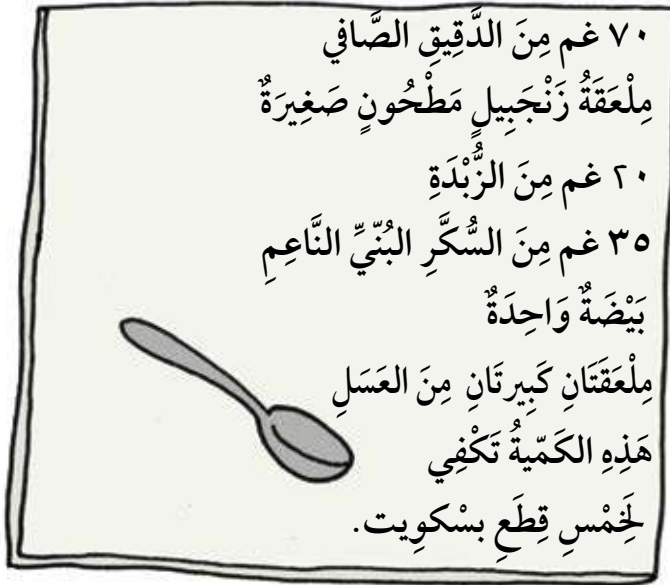 ٧٠ غم مِنَ الدَّقِيقِ الصَّافي
مِلْعَقَةُ زَنْجَبِيلٍ مَطْحُونٍ صَغِيرَةٌ
٢٠ غم مِنَ الزُّبْدَةِ
٣٥ غم مِنَ السُّكَّرِ البُنّيِّ النَّاعِمِ
بَيْضَةٌ وَاحِدَةٌ
مِلْعَقَتَانِ كَبِيرتَانِ مِنَ العَسَلِ
هَذِهِ الكَمّيةُ تَكْفِي
لِخَمْسِ قِطَعِ بسْكوِيت.